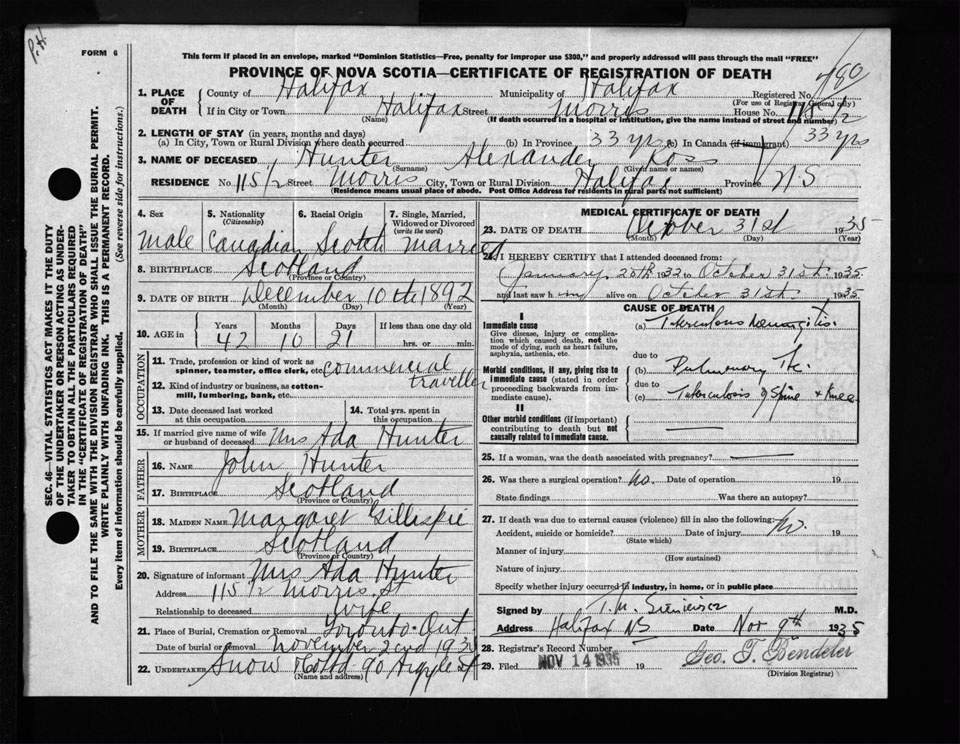 P.H.
FORM 6
This form if placed in an envelope, marked "Dominion Statistics—Free, penalty for improper use $300," and properly addressed will pass through the mail "FREE"
PROVINCE OF NOVA SCOTIA—CERTIFICATE OF REGISTRATION OF DEATH
1. PLACE OF DEATH
County of Halifax Municipality of Halifax Registered No.
(For use of Registrar General only)
If in City or Town Halifax Street Morris House No. 115 1/2
(Name) (If death occurred in a hospital or institution, give the name instead of street and number)
2. LENGTH OF STAY (in years, months and days)
(a) In City, Town or Rural Division where death occurred (b) In Province 33 yrs (c) In Canada (if immigrant) 33 yrs
3. NAME OF DECEASED Hunter Alexander Ross
(Surname) (Given name or names)
RESIDENCE No 115 1/2 Street Morris City, Town or Rural Division Halifax Province N S
(Residence means usual place of abode. Post Office Address for residents in rural parts not sufficient)
SEC. 46—VITAL STATISTICS ACT MAKES IT THE DUTY
OF THE UNDERTAKER OR PERSON ACTING AS UNDER-
TAKER TO OBTAIN ALL THE PARTICULARS REQUIRED
IN THE "CERTIFICATE OF REGISTRATION OF DEATH"
AND TO FILE THE SAME WITH THE DIVISION REGISTRAR WHO SHALL ISSUE THE BURIAL PERMIT.
WRITE PLAINLY WITH UNFADING INK. THIS IS A PERMANENT RECORD.
Every item of information should be carefully supplied. (See reverse side for instructions.)
4. Sex 5. Nationality 6. Racial Origin 7. Single, Married,
(Citizenship) Widowed or Divorced
(write the word)
Male Canadian Scotch Married
8. BIRTHPLACE Scotland
(Province or Country)
9. DATE OF BIRTH December 10th 1892
(Month) (Day) (Year)
10. AGE in Years Months Days If less than one day old
42 10 21 hrs. or min.
OCCUPATION
11. Trade, profession or kind of work as
spinner, teamster, office clerk, etc. Commercial traveller
12. Kind of industry or business, as cotton-
mill, lumbering, bank, etc.
13. Date deceased last worked at this occupation
14. Total yrs. spent in this occupation
15. If married give name of wife
or husband of deceased Mrs Ada Hunter
FATHER
16. NAME John Hunter
17. BIRTHPLACE Scotland
(Province or Country)
MOTHER
18. MAIDEN NAME Margaret Gillespie
19. BIRTHPLACE Scotland
(Province or Country)
20. Signature of informant Mrs Ada Hunter
Address 115 1/2 Morris St
Relationship to deceased wife
21. Place of Burial, Cremation or Removal Toronto Ont
Date of burial or removal November 2nd 193
22. UNDERTAKER Snow & Co Ltd 90 Argyle St
(Name and address)
MEDICAL CERTIFICATE OF DEATH
23. DATE OF DEATH October 31st 1935
(Month) (Day) (Year)
24. I HEREBY CERTIFY that I attended deceased from:
January 20th 1932 to October 31st 1935
and last saw him alive on October 31st 1935
CAUSE OF DEATH
I
Immediate cause
Give disease, injury or complica-
tion which caused death, not the
mode of dying, such as heart failure,
asphyxia, asthenia, etc.
(a) Tuberculous Meningitis.
due to
Morbid conditions, if any, giving rise to
immediate cause (stated in order
proceeding backwards from im-
mediate cause).
(b) Pulmonary Tbc.
due to
(c) Tuberculosis of Spine & Knee
II
Other morbid conditions (if important)
contributing to death but not
causally related to immediate cause.
25. If a woman, was the death associated with pregnancy?
26. Was there a surgical operation? No. Date of operation 19
State findings Was there an autopsy?
27. If death was due to external causes (violence) fill in also the following:
Accident, suicide or homicide? Date of injury 19
(State which)
Manner of injury
(How sustained)
Nature of injury
Specify whether injury occurred in industry, in home, or in public place
Signed by T. M. M.D.
Address Halifax NS Date Nov 9th 1935
28. Registrar's Record Number
29. Filed NOV 14 1935 19 Geo. T. Bendeler
(Division Registrar)